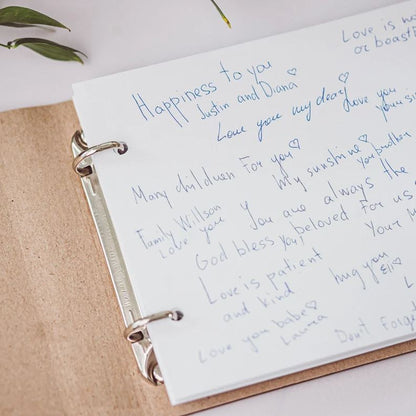 Love is n
or boastf
Happiness to you
Justin and Diana
Love you my dear
Love you
your
Many children For you
My sunshine
your brother
Family Willson
Love you
You are always the
God bless you!
beloved For us
Your
Love is patient
and kind
hug you
Eli
Love you babe
Laura
Don't Forget